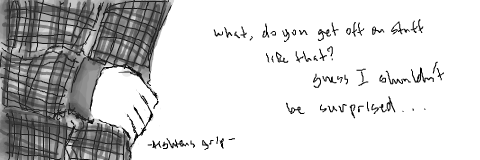 what, do you get off on stuff
like that?
guess I shouldn't
be surprised...
-tightens grip-